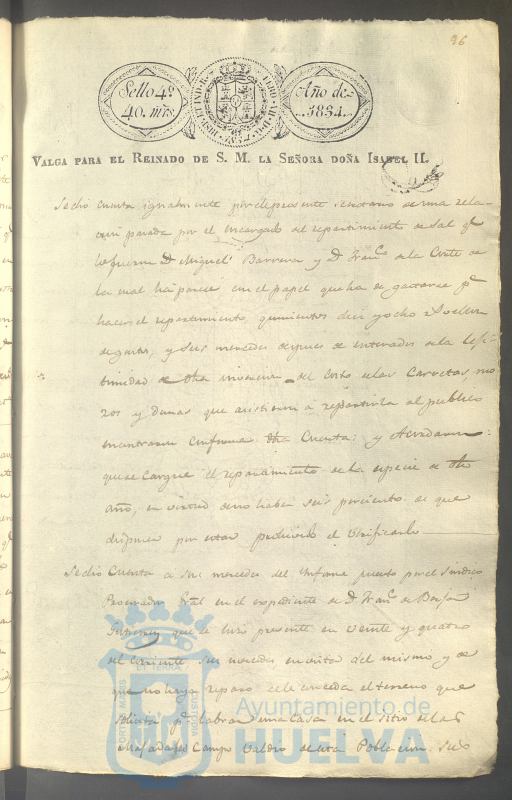 96
Sello 4º
40. mrs
Año de
1834
VALGA PARA EL REINADO DE S. M. LA SEÑORA DOÑA ISABEL II.
Se dió cuenta igualmente por el presente Escribano de una rela-
ción pasada por el encargado del repartimiento de Sal qe
lo fueron Dn Miguel Barrera y Dn Franco de la Corte de
la cual há parece con el papel que ha de gastarse pa
hacer el repartimiento, quinientos diez y ocho rs
de gastos, y Sus mercedes despues de enterados de la lexi-
timidad de dha del costo de las Carretas, mo
zos y demas que asistieron á repartirla al publico
encontraron conforme dha Cuenta: y Acordaron
que se cargue el repartimiento de la especie de dho
año, en virtud de no haber seis por ciento de que
disponer por estar proivido el Verificarlo
Se dió Cuenta a Sus mercedes del Informe puesto por el Sindico
Procurador Gral en el expediente de Dn Franco de Borja
que se hizo presente en veinte y quatro
del corriente, Sus mercedes en vista del mismo y de
que no haya reparo se le conceda el terreno que
solicita pa labrar una casa en el sitio de las
Campo Valdio de esta Poblacion. Sus
PORTUS MARIS ET TERRÆ CUSTODIA
Ayuntamiento de
HUELVA